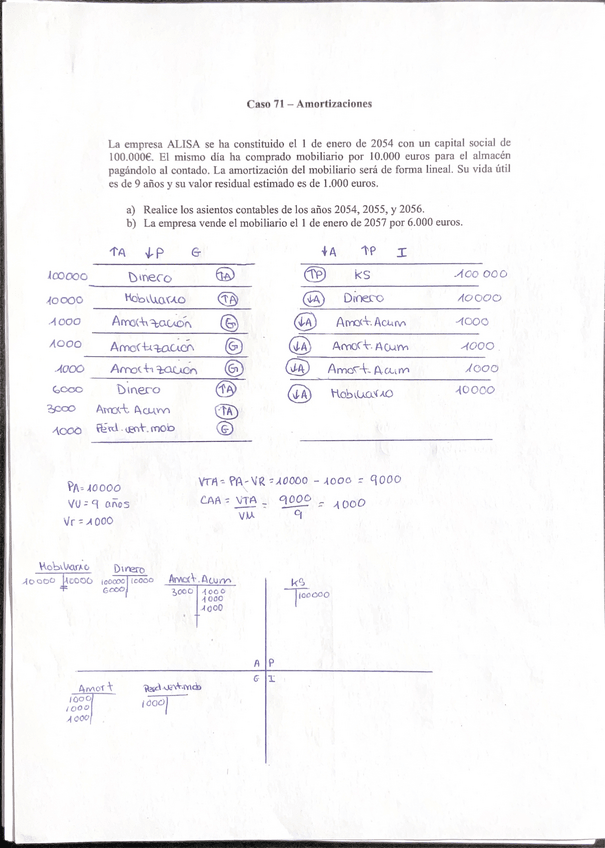 Caso 71 – Amortizaciones
La empresa ALISA se ha constituido el 1 de enero de 2054 con un capital social de
100.000€. El mismo día ha comprado mobiliario por 10.000 euros para el almacén
pagándolo al contado. La amortización del mobiliario será de forma lineal. Su vida útil
es de 9 años y su valor residual estimado es de 1.000 euros.
a) Realice los asientos contables de los años 2054, 2055, y 2056.
b) La empresa vende el mobiliario el 1 de enero de 2057 por 6.000 euros.
↑A ↓P G ↓A ↑P I
100000 Dinero ↑A ↑P KS 100 000
10000 Mobiliario ↑A ↓A Dinero 10000
1000 Amortización G ↓A Amort. Acum 1000
1000 Amortización G ↓A Amort. Acum 1000
1000 Amortización G ↓A Amort. Acum 1000
6000 Dinero ↑A ↓A Mobiliario 10000
3000 Amort Acum ↑A
1000 Pérd. vent. mob G
PA = 10000
VU = 9 años
Vr = 1000
VTA = PA - VR = 10000 - 1000 = 9000
CAA = VTA / VU = 9000 / 9 = 1000
Mobiliario Dinero Amort. Acum KS
10000 | 10000 100000 | 10000 3000 | 1000 | 100000
6000 | | 1000
| 1000
A | P
G | I
Amort Perd vent mob
1000 | 1000 |
1000 |
1000 |